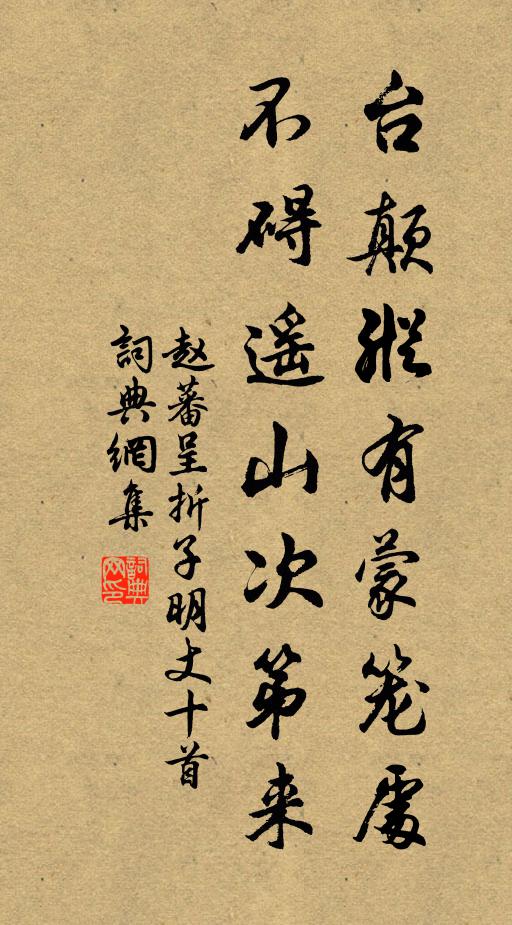 台颠縱有蒙笼處
不碍遥山次第来
赵蕃呈折子明丈十首
詞典網集
詞典网印